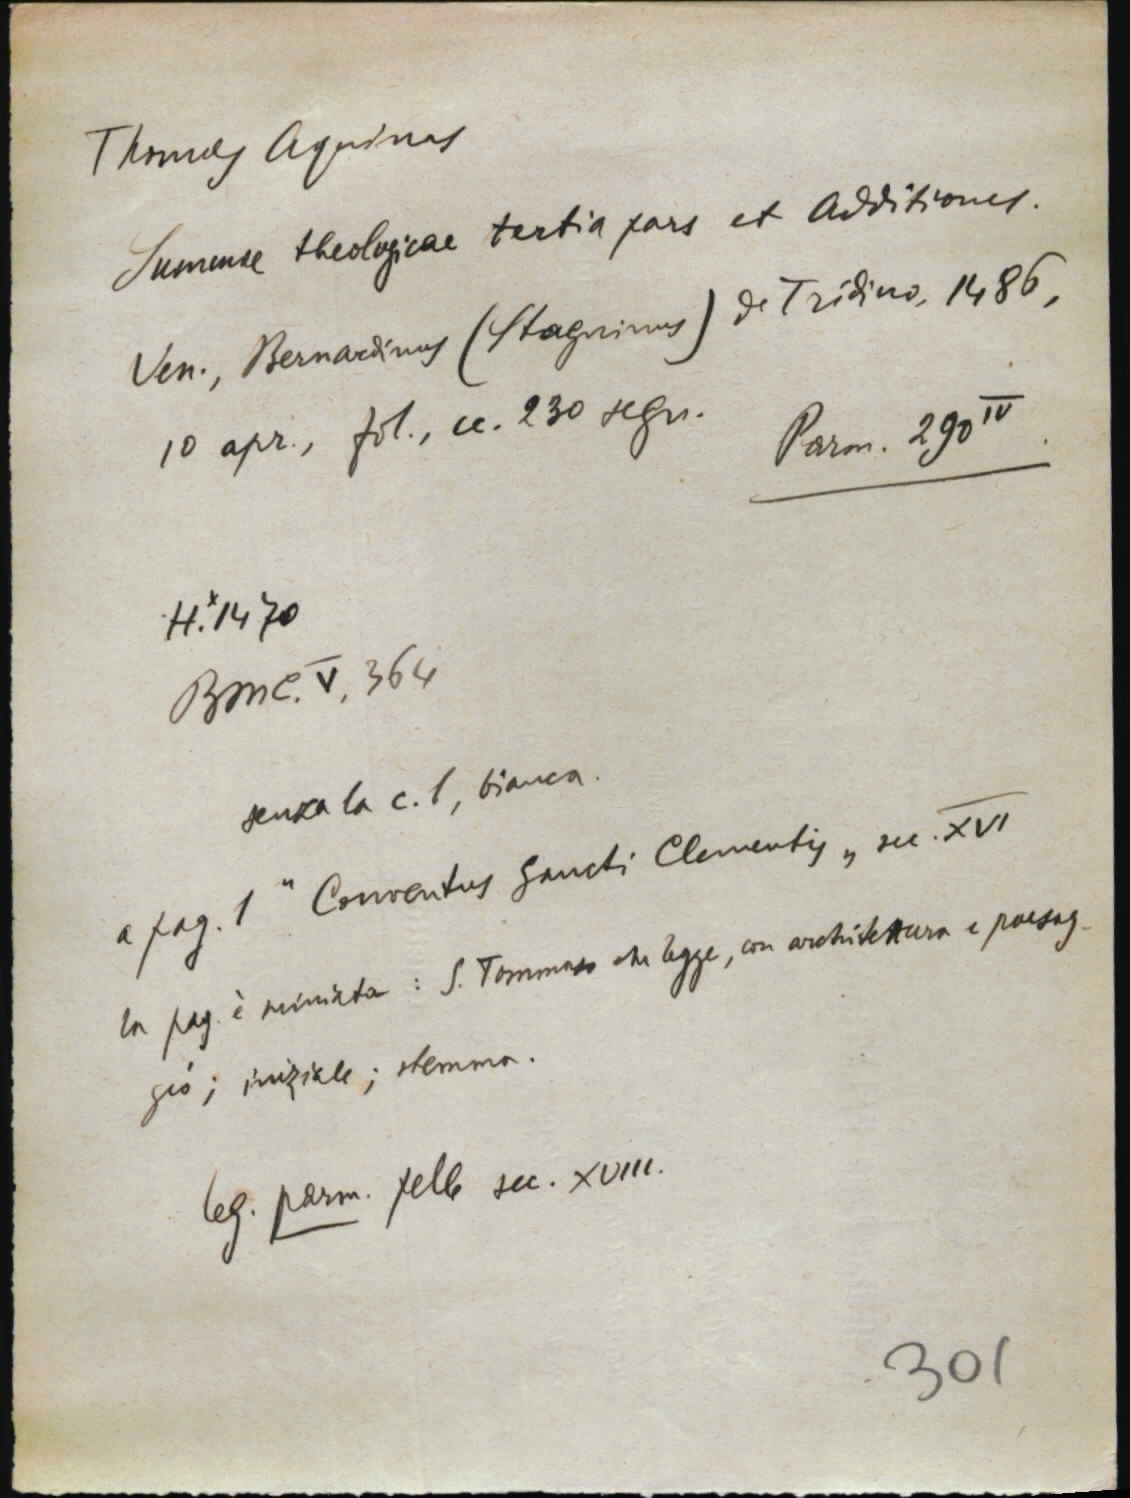 Thomas Aquinas
Summae theologicae tertia pars et Additiones.
Ven., Bernardinus (Stagninus) de Tridino, 1486,
10 apr., fol., cc. 230 segn.
Parm. 290 IV
H.* 1470
BMC. V, 364
senza la c. 1, bianca.
a pag. 1 " Conventus Sancti Clementis „ sec. XVI
la pag. è miniata : S. Tommaso che legge, con architettura e paesag-
gio ; iniziale ; stemma.
leg. parm. pelle sec. XVIII.
301